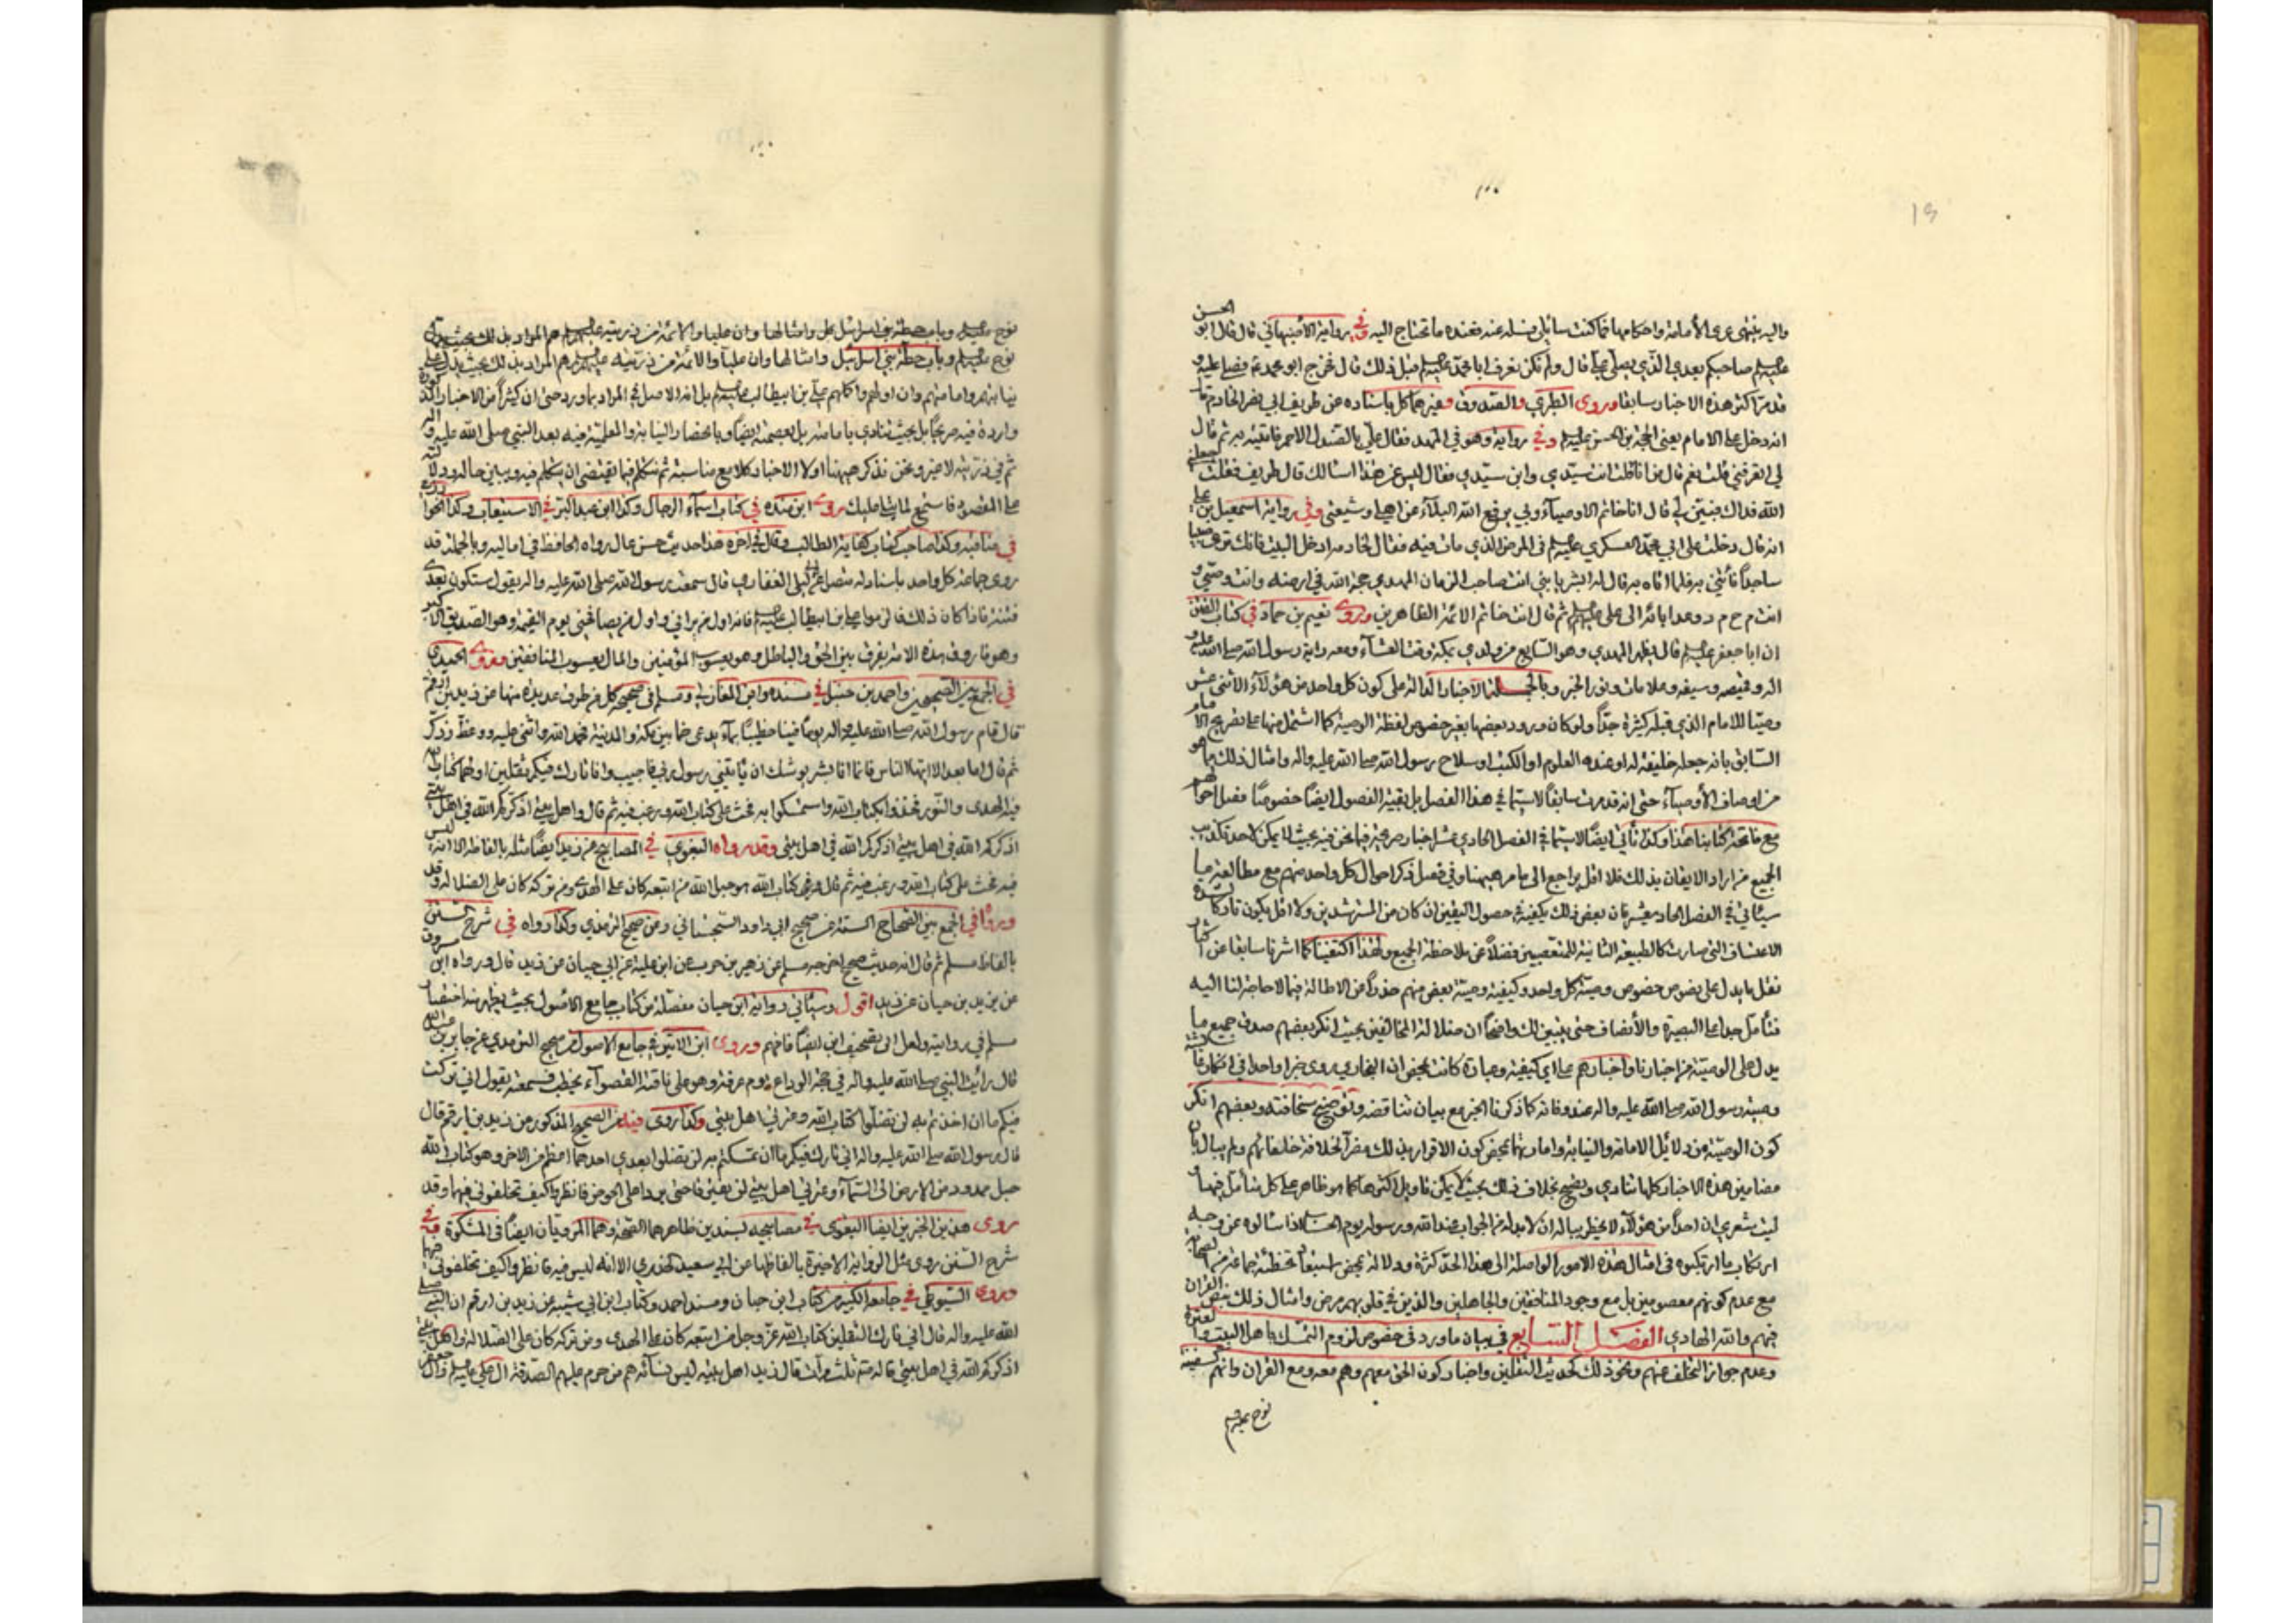 واليه ينتهي عرى الامامة واحكامها فما كنت سائلي فسله عنه فعنده ما تحتاج اليه وفي رواية الاصبهاني قال قال ابو الحسن
عليه السلم صاحبكم بعدي الذي يصلي عليّ قال ولم نكن نعرف ابا محمد عليه السلم قبل ذلك قال فخرج ابو محمد فصلى عليه و
قد مر اكثر هذه الاخبار سابقا وروى الطبري والصدوق وغيرهما كل باسناده عن طريف ابي نصر الخادم
انه دخل على الامام يعني الحجة بن الحسن عليه السلم وفي رواية وهو في المهد فقال علي بالصندل الاحمر فاتيته به ثم قال
لي اتعرفني قلت نعم قال من انا قلت انت سيدي وابن سيدي فقال ليس عن هذا اسالك قال طريف فقلت جعلني
الله فداك فبين لي قال انا خاتم الاوصيآء وبي يرفع الله البلآء عن اهلي وشيعتي وفي رواية اسمعيل بن علي
انه قال دخلت على ابي محمد العسكري عليه السلم في المرض الذي مات فيه فقال لخادمه ادخل البيت فانك ترى صبيا
ساجداً فأتني به فلما اتاه به قال له ابشر يا بني انت صاحب الزمان المهدي حجة الله في ارضه وانت وصيي و
انت م ح م د وعد ابائه الى علي عليه السلم ثم قال انت خاتم الائمة الطاهرين وروى نعيم بن حماد في كتاب الفتن
ان ابا جعفر عليه السلم قال يظهر المهدي وهو السابع من ولدي بمكة وقت العشآء ومعه راية رسول الله صلى الله عليه و
اله وقميصه وسيفه وعلامات ونور الخبر وبالجملة الاخبار الدالة على كون كل واحد من هؤلآء الاثنى عشر
وصيّا للامام الذي قبله كثيرة جدّاً ولو كان ورود بعضها بغير خصوص لفظة الوصية كما اشتمل منها على تصريح الامام
السابق بانه جعله خليفة له او عنده العلوم او الكتب او سلاح رسول الله صلى الله عليه واله وامثال ذلك مما هو
من اوصاف الأوصيآء حتى انه قد مرت سابقاً لاسيما في هذا الفصل بل بقية الفصول ايضاً خصوصاً
مع فاتحة كتابنا هذا وكذا تأتي ايضاً لاسيما في الفصل الحادي عشر اخبار صريحة فيما نحن فيه بحيث لا يمكن لاحد تكذيب
الجميع من اراد الايقان بذلك فلا اقل يراجع الى ما مر هيهنا وفي فصل ذكر احوال كل واحد منهم مع مطالعة ما
سيأتي في الفصل الحاد يعشر فان بعض ذلك يكفيه في حصول اليقين ان كان من المسترشدين ولا اقل يكون تاركا لشدة
الاعتساف التي صارت كالطبيعة الثانية للمتعصبين فضلاً عن ملاحظة الجميع ولهذا اكتفينا كما اشرنا سابقا عن اكثار
نقل ما يدل على نصوص خصوص وصية كل واحد وكيفية وصية بعض منهم حذراً من الاطالة فيما لا حاجة لنا اليه
فتأمل جدا على البصيرة والأنصاف حتى يتبين لك واضحاً ان ضلالة المخالفين بحيث انكر بعضهم صدق جميع ما
يدل على الوصية من اخبارنا واخبارهم على اي كيفية وعبارة كانت بمحض ان البخاري روى خبرا واحدا في انكار
وصية رسول الله صلى الله عليه واله عند وفاته كما ذكرنا الخبر مع بيان تناقضه وتوضيح سخافته وبعضهم انكر
كون الوصية من دلائل الامامة والنيابة وامارتها بمحض كون الاقرار بذلك مضرا لخلافة خلفائهم ولم يبال بان
مضامين هذه الاخبار كلها تنادي وبصريح بخلاف ذلك بحيث لا يمكن تاويل اكثرها كما هو ظاهر على كل متأمل فيها و
ليت شعري ان احداً من هؤلآء لا يخطر بباله ان لابد له من الجواب عند الله ورسوله يوم الحساب اذا سألوه عن وجه
ارتكاب ما ارتكبوه في امثال هذه الامور الواصلة الى هذا الحد كثرة ودلالة بمحض استبعاد تخطئة جماعة من الصحابة
مع عدم كونهم معصومين بل مع وجود المنافقين والجاهلين والذين في قلوبهم مرض وامثال ذلك بنص القران
فيهم والله الهادي الفصل السابع في بيان ما ورد في خصوص لزوم التمسك باهل البيت والعترة
وعدم جواز التخلف عنهم ونحو ذلك كحديث الثقلين واخبار كون الحق معهم وهم معه ومع القران وانهم كسفينة
نوح عليه السلم
نوح عليه السلم وباب حطة بني اسرائيل وامثالها وان عليا والائمة من ذريته عليهم السلم هم المراد بذلك بحيث يدل على
نيابتهم وامامتهم وان اولهم واكملهم علي بن ابيطالب عليه السلم بل انه الاصل في المراد بما ورد حتى ان كثيراً من الاخبار
واردة فيه صريحاً بل بحيث تنادي بامامته بل بعصمته ايضاً وبانحصار النيابة والمعلمية فيه بعد النبي صلى الله عليه واله
ثم في ذريته لا غير ونحن نذكر هيهنا اولا الاخبار كلا مع مناسبة ثم نتكلم فيما يقتضى ان يتكلم فيه ويبين حاله ودلالته
على المقصود فاستمع لما يتلى عليك روى ابن منده في كتاب اسماء الرجال وكذا ابن عبد البر في الاستيعاب وكذا
في مناقبه وكذا صاحب كتاب كفاية الطالب وقال في اخره هذا حديث حسن عال رواه الحافظ في اماليه وبالجملة قد
روى جماعة كل واحد باسناد له متصل عن ابي ليلى الغفاري قال سمعت رسول الله صلى الله عليه واله يقول ستكون بعدي
فتنة فاذا كان ذلك فالزموا علي بن ابيطالب عليه السلم فانه اول من يراني واول من يصافحني يوم القيمة وهو الصديق الاكبر
وهو فاروق هذه الامة يفرق بين الحق والباطل وهو يعسوب المؤمنين والمال يعسوب المنافقين وروى الحميدي
في الجمع بين الصحيحين واحمد بن حنبل في مسنده وابن المغازلي ومسلم في صحيحه كل من طرق عديدة منها عن زيد بن ارقم
قال قام رسول الله صلى الله عليه واله يوماً فينا خطيباً بمآء يدعى خما بين مكة والمدينة فحمد الله واثنى عليه ووعظ وذكر
ثم قال اما بعد الا ايها الناس فانما انا بشر يوشك ان يأتيني رسول ربي فاجيب وانا تارك فيكم ثقلين اولهما كتاب الله
فيه الهدى والنور فخذوا بكتاب الله واستمسكوا به فحث على كتاب الله ورغب فيه ثم قال واهل بيتي اذكركم الله في اهل بيتي
اذكركم الله في اهل بيتي اذكركم الله في اهل بيتي وقد رواه البغوي في المصابيح عن زيد ايضاً مثله بالفاظه الا انه
فيه فحث على كتاب الله ورغب فيه ثم قال وفي كتاب الله هو حبل الله من اتبعه كان على الهدى ومن تركه كان على الضلالة وقد
روياً في الجمع بين الصحاح الستة عن صحيح ابي داود السجستاني ومن صحيح الترمذي وكذا رواه في شرح السنن
بالفاظ مسلم ثم قال انه حديث صحيح اخرجه مسلم عن زهير بن حرب عن ابن علية عن ابي حيان عن زيد قال ورواه ابن مسروق
عن يزيد بن حيان عن زيد اقول وسيأتي رواية ابن حيان مفصلة من كتاب جامع الاصول بحيث يظهر منه اختصار
مسلم في روايته ولعل ابي تصحيف ابن ايضاً فافهم وروى ابن الاثير في جامع الاصول من صحيح الترمذي عن جابر بن عبد الله
قال رأيت النبي صلى الله عليه واله في حجة الوداع يوم عرفة وهو على ناقته القصوآء يخطب فسمعته يقول اني تركت
فيكم ما ان اخذتم به لن تضلوا كتاب الله وعترتي اهل بيتي وكذا روى فيه من الصحيح المذكور عن زيد بن ارقم قال
قال رسول الله صلى الله عليه واله اني تارك فيكم ما ان تمسكتم به لن تضلوا بعدي احدهما اعظم من الاخر وهو كتاب الله
حبل ممدود من الارض الى السمآء وعترتي اهل بيتي لن يفترقا حتى يردا على الحوض فانظروا كيف تخلفوني فيهما وقد
روى هذين الخبرين ايضا البغوي في مصابيحه بسندين ظاهرهما الصحة وهما المرويان ايضاً في المشكوة وفي
شرح السنن روى مثل الرواية الاخيرة بالفاظها عن ابي سعيد الخدري الا انه ليس فيه فانظروا كيف تخلفوني فيهما
وروى السيوطي في جامعه الكبير من كتاب ابن حبان ومسند احمد وكتاب ابن ابي شيبة عن زيد بن ارقم ان النبي صلى
الله عليه واله قال اني تارك الثقلين كتاب الله عز وجل من اتبعه كان على الهدى ومن تركه كان على الضلالة واهل بيتي
اذكركم الله في اهل بيتي قاله ثلث مرات قال زيد اهل بيته ليس نسآئه هم من حرم عليهم الصدقة ال علي عليه السلم وال جعفر